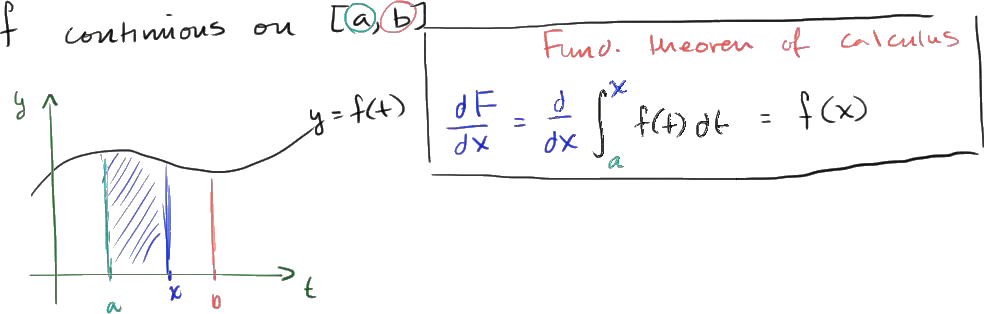 f continious on [a, b]
Fund. theorem of calculus
dF/dx = d/dx ∫_a^x f(t) dt = f(x)
y
y = f(t)
t
a
x
b